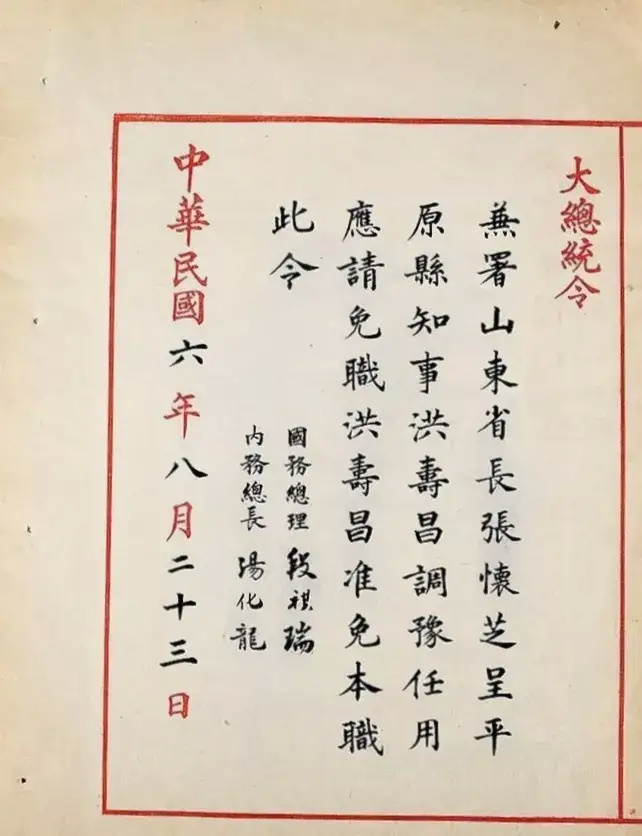 大總統令
兼署山東省長張懷芝呈平
原縣知事洪壽昌調豫任用
應請免職洪壽昌准免本職
此令
國務總理段祺瑞
內務總長湯化龍
中華民國六年八月二十三日